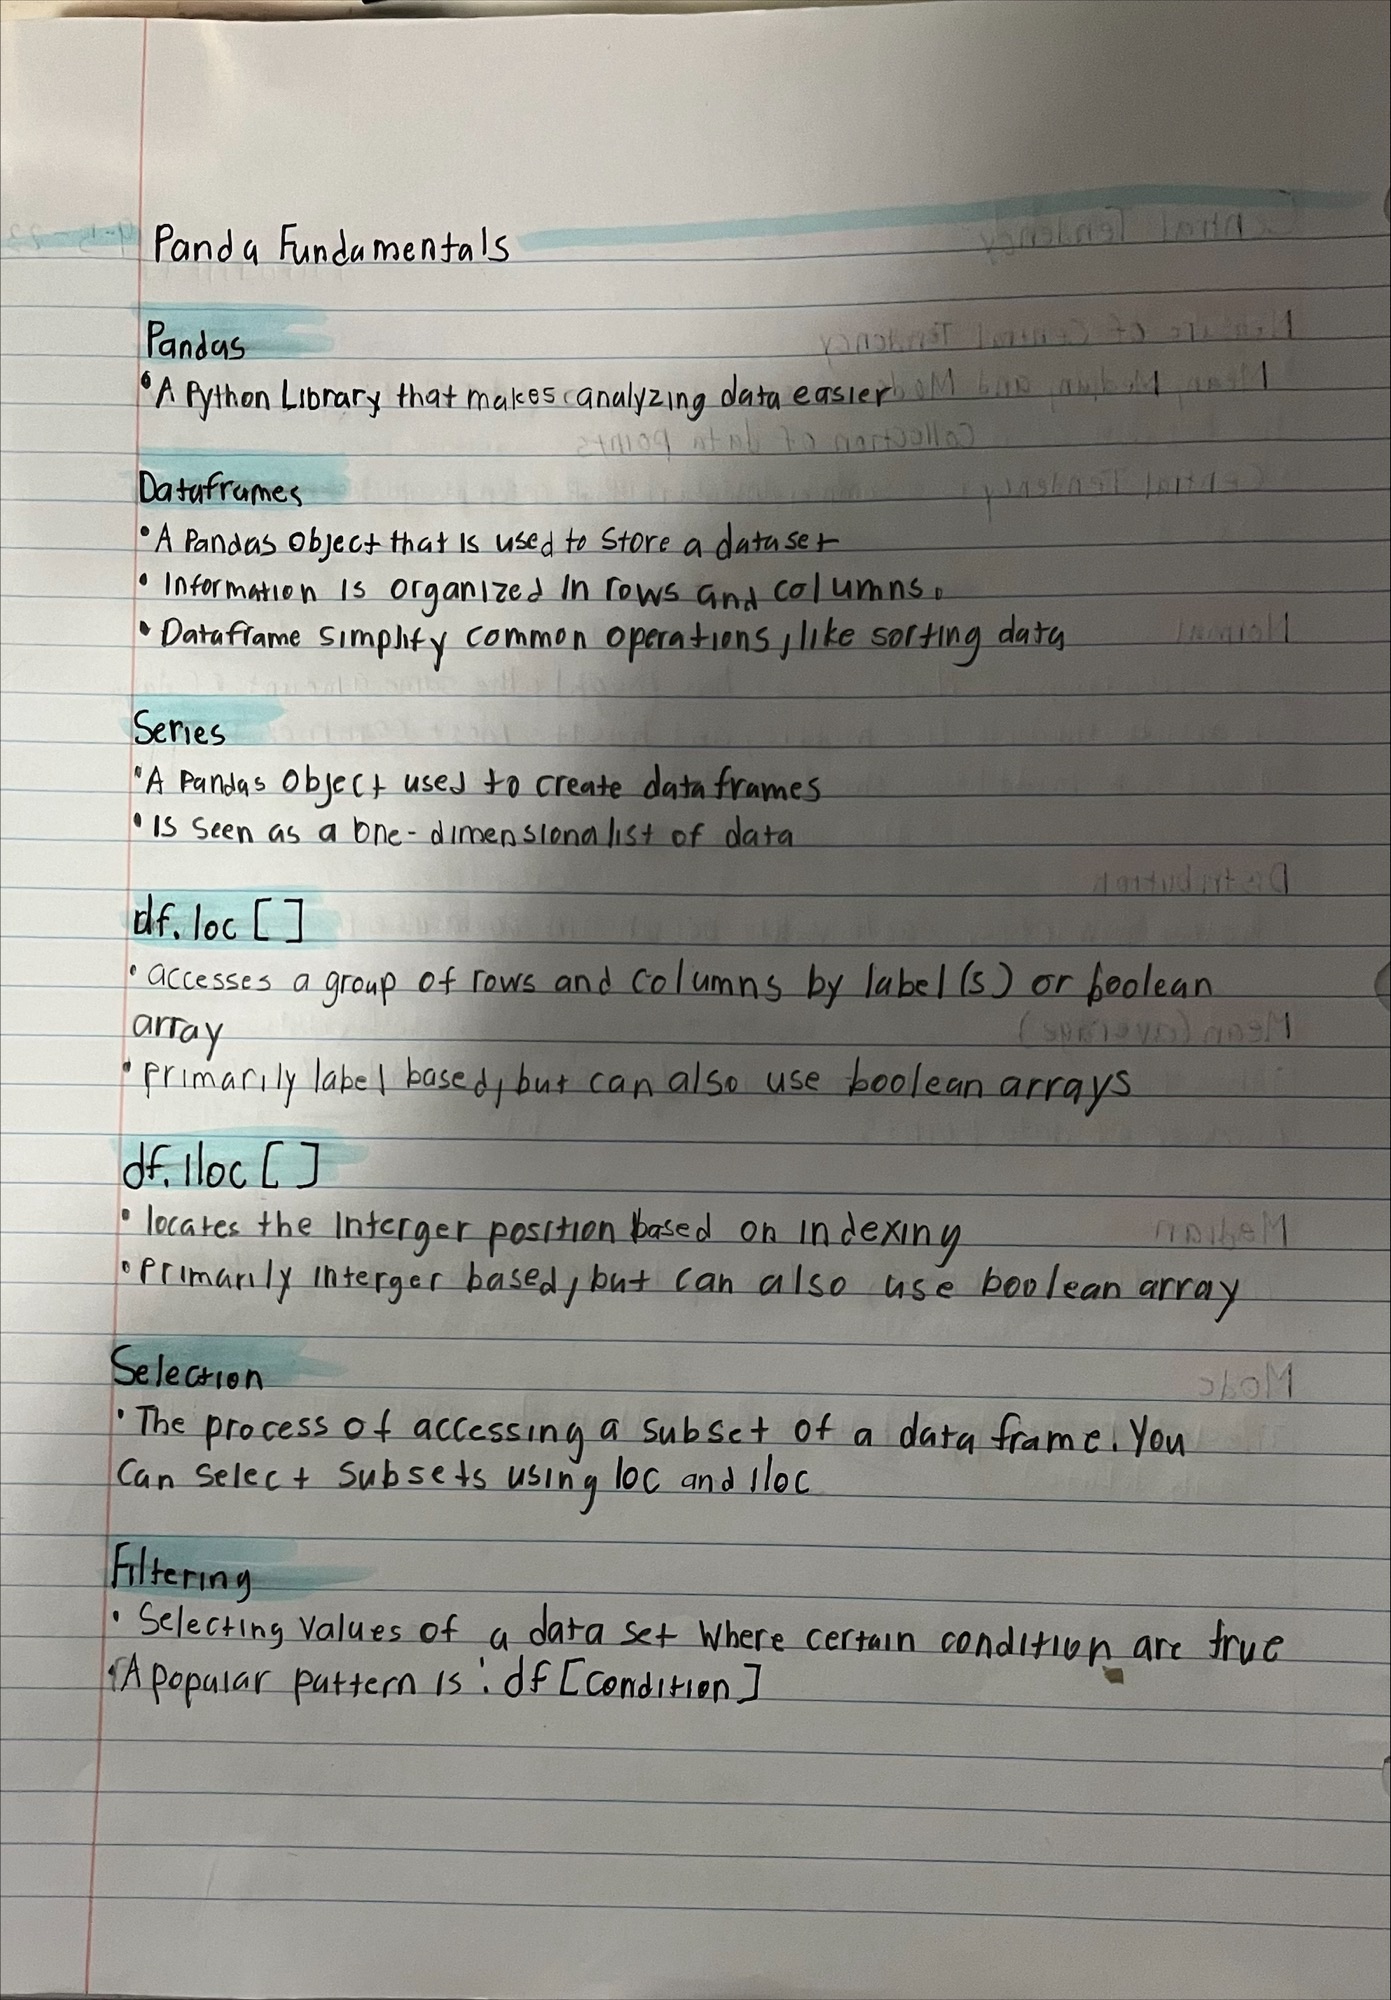 Panda Fundamentals
Pandas
• A Python Library that makes analyzing data easier
Dataframes
• A Pandas object that is used to store a dataset
• Information is organized in rows and columns.
• Dataframe simplify common operations, like sorting data
Series
• A Pandas object used to create dataframes
• Is seen as a one-dimensional list of data
df.loc []
• accesses a group of rows and columns by label(s) or boolean
array
• primarily label based, but can also use boolean arrays
df.iloc []
• locates the interger position based on indexing
• Primarily interger based, but can also use boolean array
Selection
• The process of accessing a subset of a data frame. You
Can select subsets using loc and iloc
Filtering
• Selecting values of a data set where certain condition are true
• A popular pattern is: df [condition]